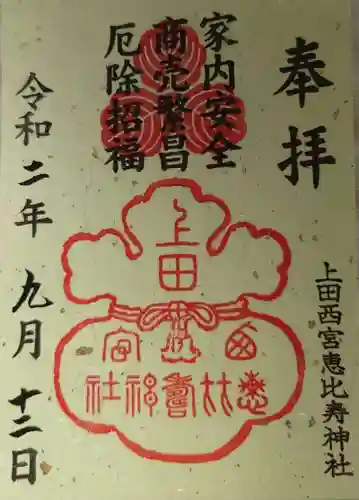 奉拝
家内安全
商売繁昌
厄除招福
上田
西宮
恵比寿
神社
上田西宮恵比寿神社
令和二年 九月 十二日